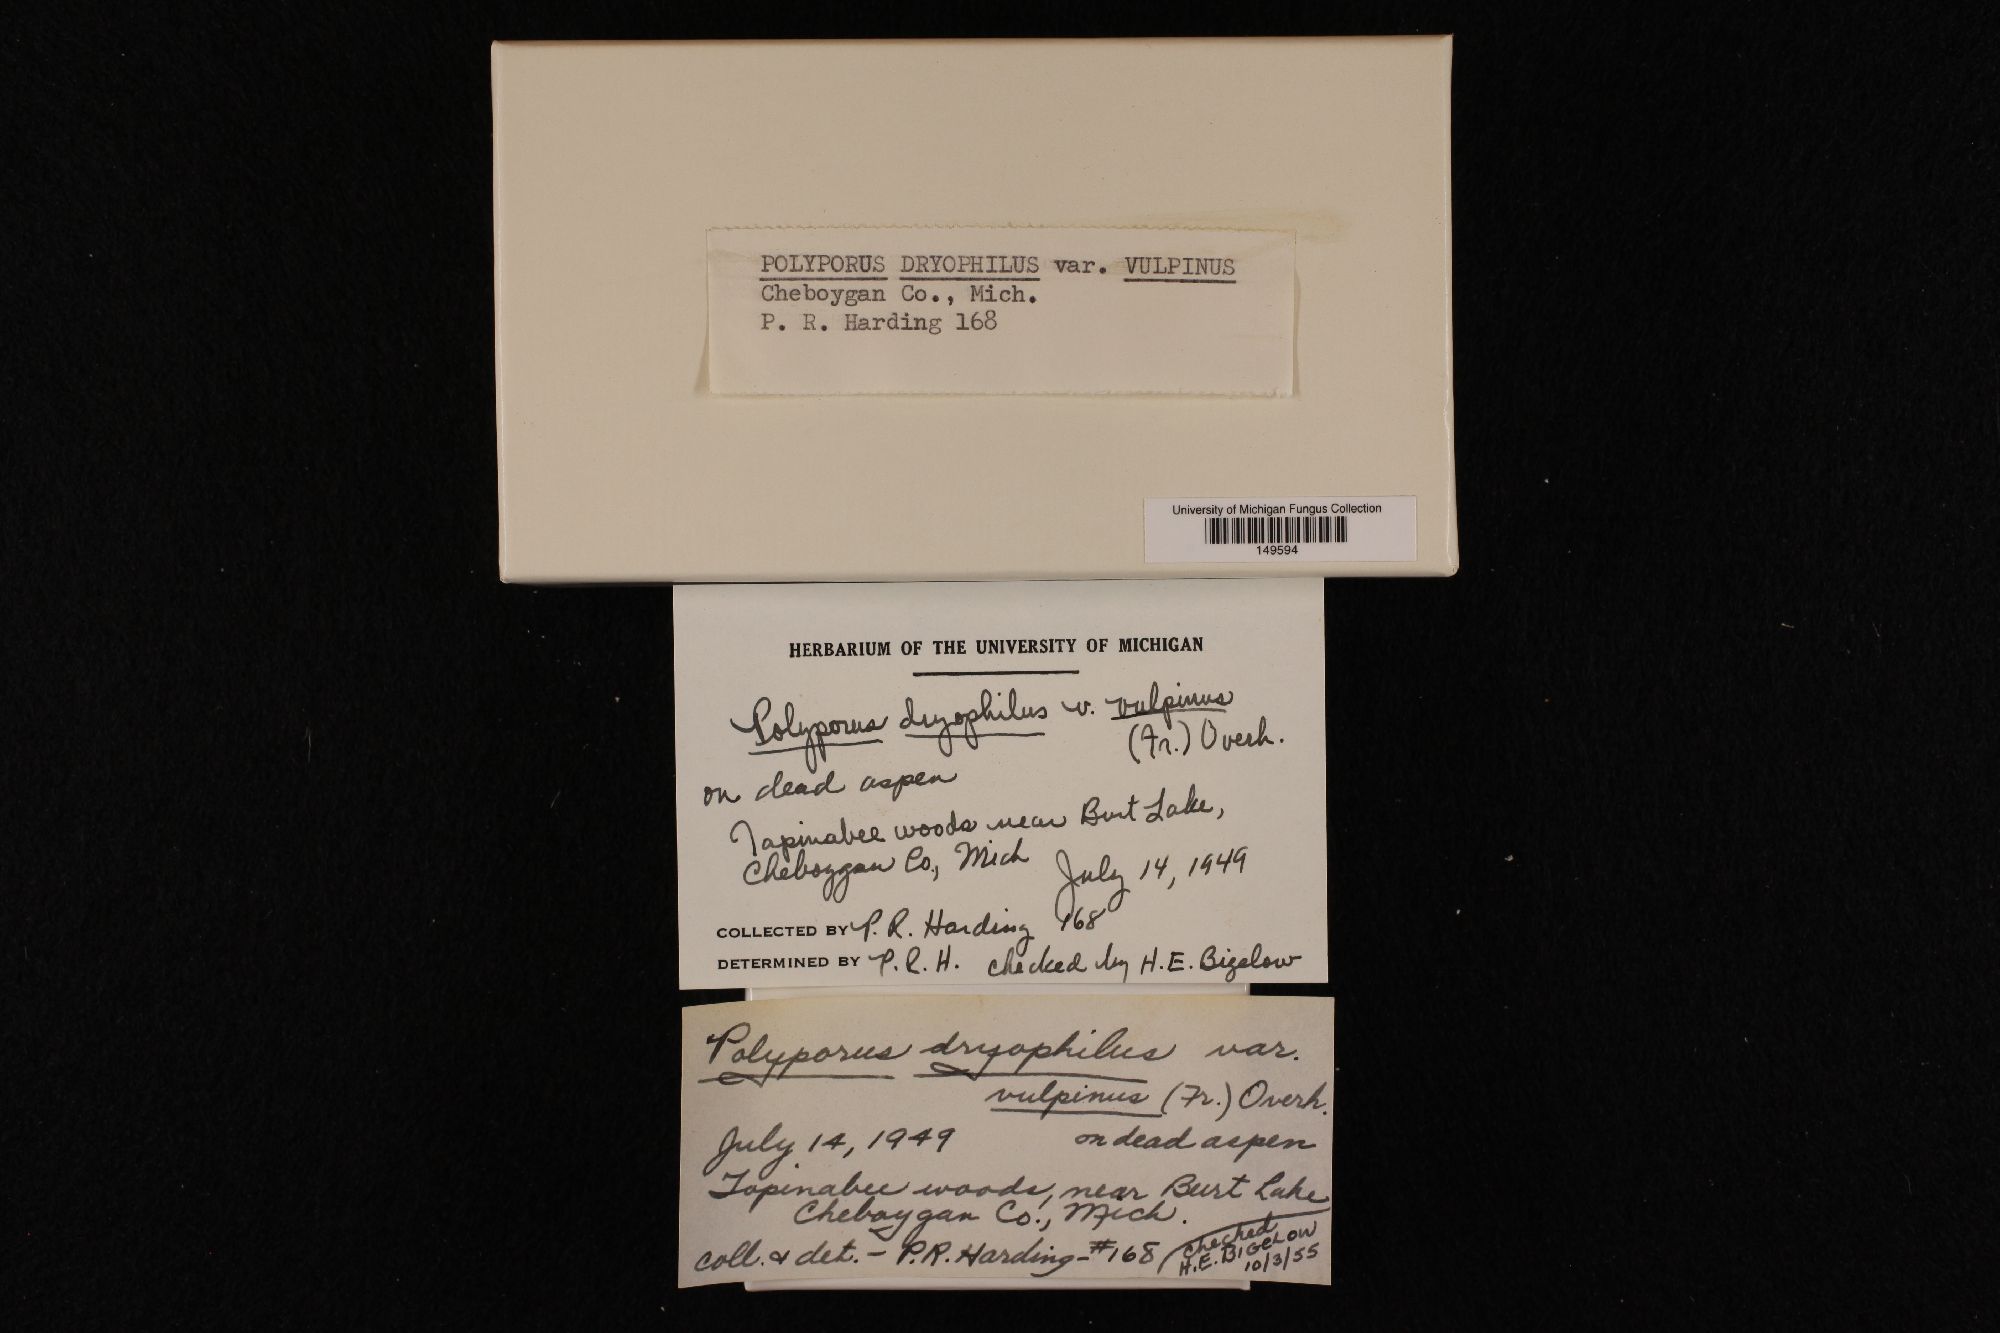 POLYPORUS DRYOPHILUS var. VULPINUS
Cheboygan Co., Mich.
P. R. Harding 168
University of Michigan Fungus Collection
149594
HERBARIUM OF THE UNIVERSITY OF MICHIGAN
Polyporus dryophilus v. vulpinus
(Fr.) Overh.
on dead aspen
Topinabee woods near Burt Lake,
Cheboygan Co., Mich July 14, 1949
COLLECTED BY P. R. Harding 168
DETERMINED BY P. R. H. checked by H. E. Bigelow
Polyporus dryophilus var.
vulpinus (Fr.) Overh.
July 14, 1949 on dead aspen
Topinabee woods, near Burt Lake
Cheboygan Co., Mich.
coll. & det. - P. R. Harding - #168
checked
H. E. BIGELOW
10/3/55